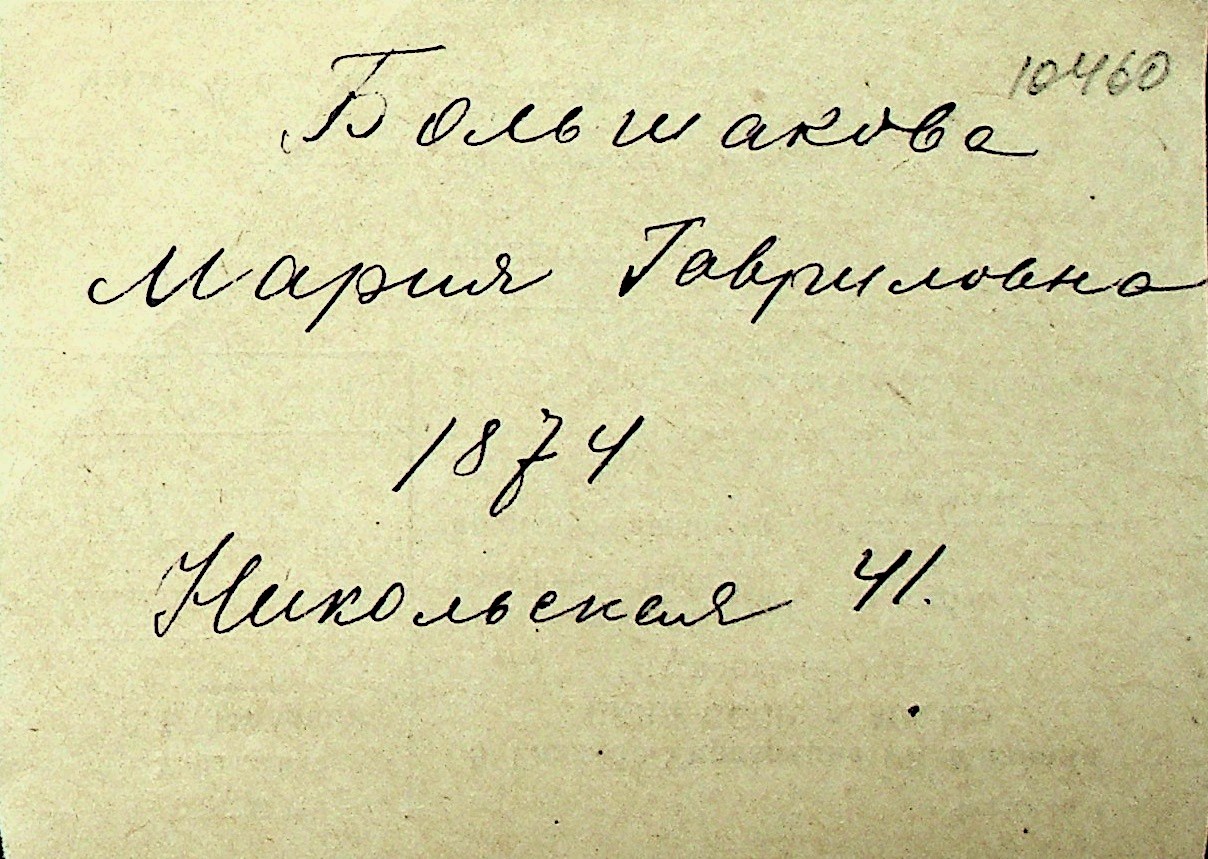 10460
Большакова
Мария Гавриловна
1874
Никольская 41.